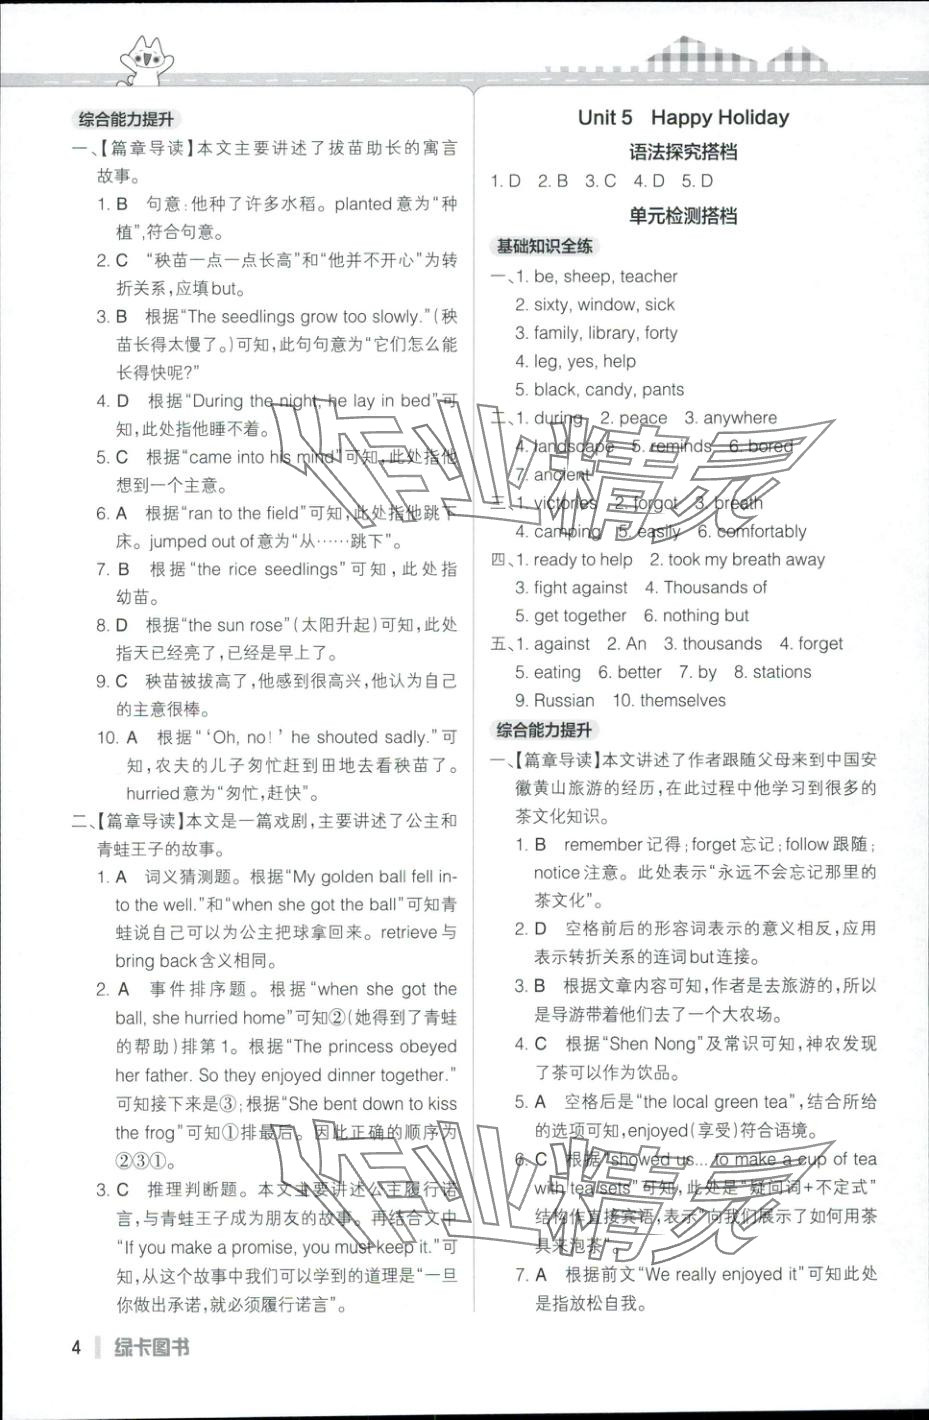 综合能力提升
一、【篇章导读】本文主要讲述了拔苗助长的寓言
故事。
1. B 句意:他种了许多水稻。planted意为“种
植”,符合句意。
2. C “秧苗一点一点长高”和“他并不开心”为转
折关系,应填but。
3. B 根据“The seedlings grow too slowly.”(秧
苗长得太慢了。)可知,此句句意为“它们怎么能
长得快呢?”
4. D 根据“During the night, he lay in bed”可
知,此处指他睡不着。
5. C 根据“came into his mind”可知,此处指他
想到一个主意。
6. A 根据“ran to the field”可知,此处指他跳下
床。jumped out of意为“从……跳下”。
7. B 根据“the rice seedlings”可知,此处指
幼苗。
8. D 根据“the sun rose”(太阳升起)可知,此处
指天已经亮了,已经是早上了。
9. C 秧苗被拔高了,他感到很高兴,他认为自己
的主意很棒。
10. A 根据“‘Oh, no!’ he shouted sadly.”可
知,农夫的儿子匆忙赶到田地去看秧苗了。
hurried意为“匆忙,赶快”。
二、【篇章导读】本文是一篇戏剧,主要讲述了公主和
青蛙王子的故事。
1. A 词义猜测题。根据“My golden ball fell in-
to the well.”和“when she got the ball”可知青
蛙说自己可以为公主把球拿回来。retrieve与
bring back含义相同。
2. A 事件排序题。根据“when she got the
ball, she hurried home”可知②(她得到了青蛙
的帮助)排第1。根据“The princess obeyed
her father. So they enjoyed dinner together.”
可知接下来是③;根据“She bent down to kiss
the frog”可知①排最后。因此正确的顺序为
②③①。
3. C 推理判断题。本文主要讲述公主履行诺
言,与青蛙王子成为朋友的故事。再结合文中
“If you make a promise, you must keep it.”可
知,从这个故事中我们可以学到的道理是“一旦
你做出承诺,就必须履行诺言”。
4 绿卡图书
Unit 5 Happy Holiday
语法探究搭档
1. D 2. B 3. C 4. D 5. D
单元检测搭档
基础知识全练
一、1. be, sheep, teacher
2. sixty, window, sick
3. family, library, forty
4. leg, yes, help
5. black, candy, pants
二、1. during 2. peace 3. anywhere
4. landscape 5. reminds 6. bored
7. ancient
三、1. victories 2. forgot 3. breath
4. camping 5. easily 6. comfortably
四、1. ready to help 2. took my breath away
3. fight against 4. Thousands of
5. get together 6. nothing but
五、1. against 2. An 3. thousands 4. forget
5. eating 6. better 7. by 8. stations
9. Russian 10. themselves
综合能力提升
一、【篇章导读】本文讲述了作者跟随父母来到中国安
徽黄山旅游的经历,在此过程中他学习到很多的
茶文化知识。
1. B remember记得;forget忘记;follow跟随;
notice注意。此处表示“永远不会忘记那里的
茶文化”。
2. D 空格前后的形容词表示的意义相反,应用
表示转折关系的连词but连接。
3. B 根据文章内容可知,作者是去旅游的,所以
是导游带着他们去了一个大农场。
4. C 根据“Shen Nong”及常识可知,神农发现
了茶可以作为饮品。
5. A 空格后是“the local green tea”,结合所给
的选项可知,enjoyed(享受)符合语境。
6. C 根据“showed us... to make a cup of tea
with tea sets”可知,此处是“疑问词+不定式”
结构作直接宾语,表示“向我们展示了如何用茶
具来泡茶”。
7. A 根据前文“We really enjoyed it”可知此处
是指放松自我。
作业精灵
作业精灵